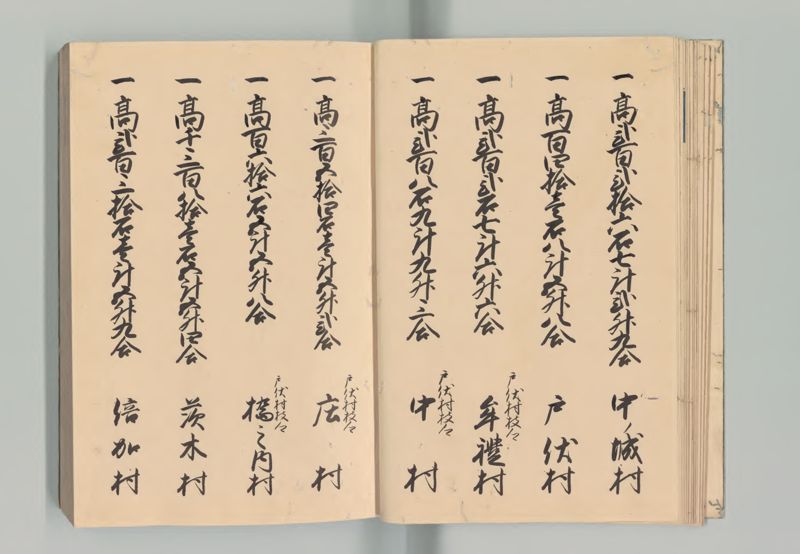 一 高弐百弐拾六石七斗弐升九合 中ノ城村
一 高百四拾壱石八斗五升八合 戸伏村
一 高弐百弐石七斗六升六合 戸伏村枝々 牟禮村
一 高弐百八石九斗九升三合 戸伏村枝々 中村
一 高三百五拾四石壱斗五升弐合 戸伏村枝々 庄村
一 高百六拾六石五斗五升八合 戸伏村枝々 橋之内村
一 高千三百八拾壱石五斗五升四合 茨木村
一 高弐百三拾石壱斗五升九合 倍加村